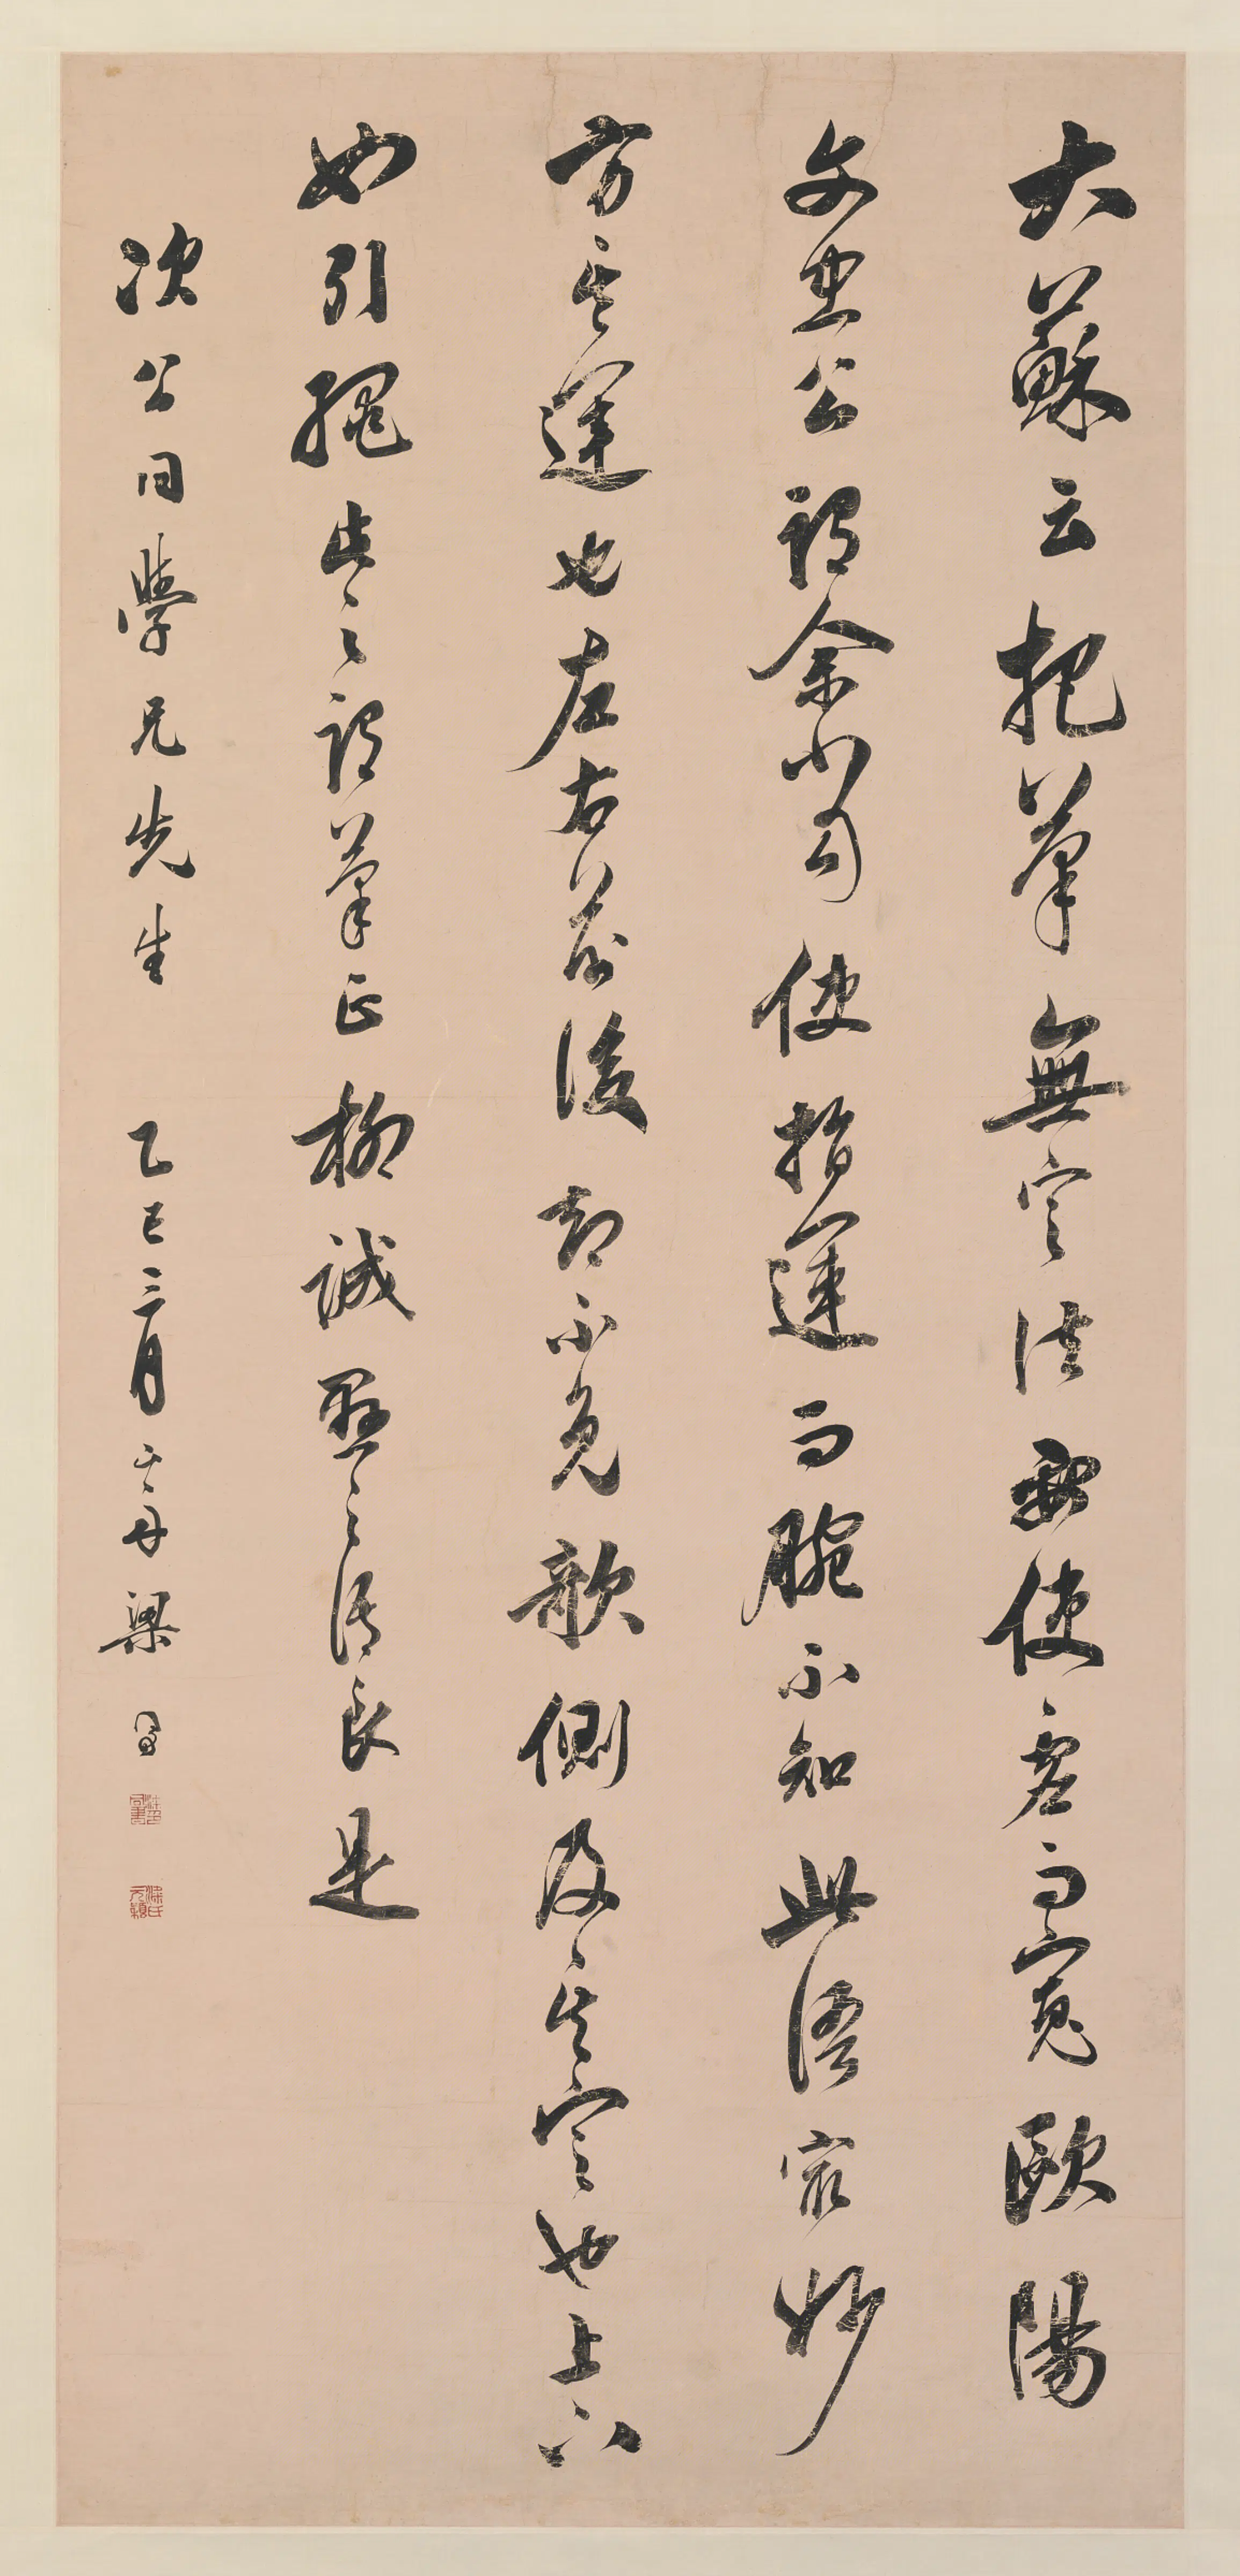 大蘇云把筆無定法要使虛而寬歐陽
文忠公謂余當使指運而腕不知此語最妙
方其運也左右前後却不免欹側及其定也上下
如引繩此之謂筆正柳誠懸之語良是
次公同學兄先生 乙巳三月 山舟梁同書